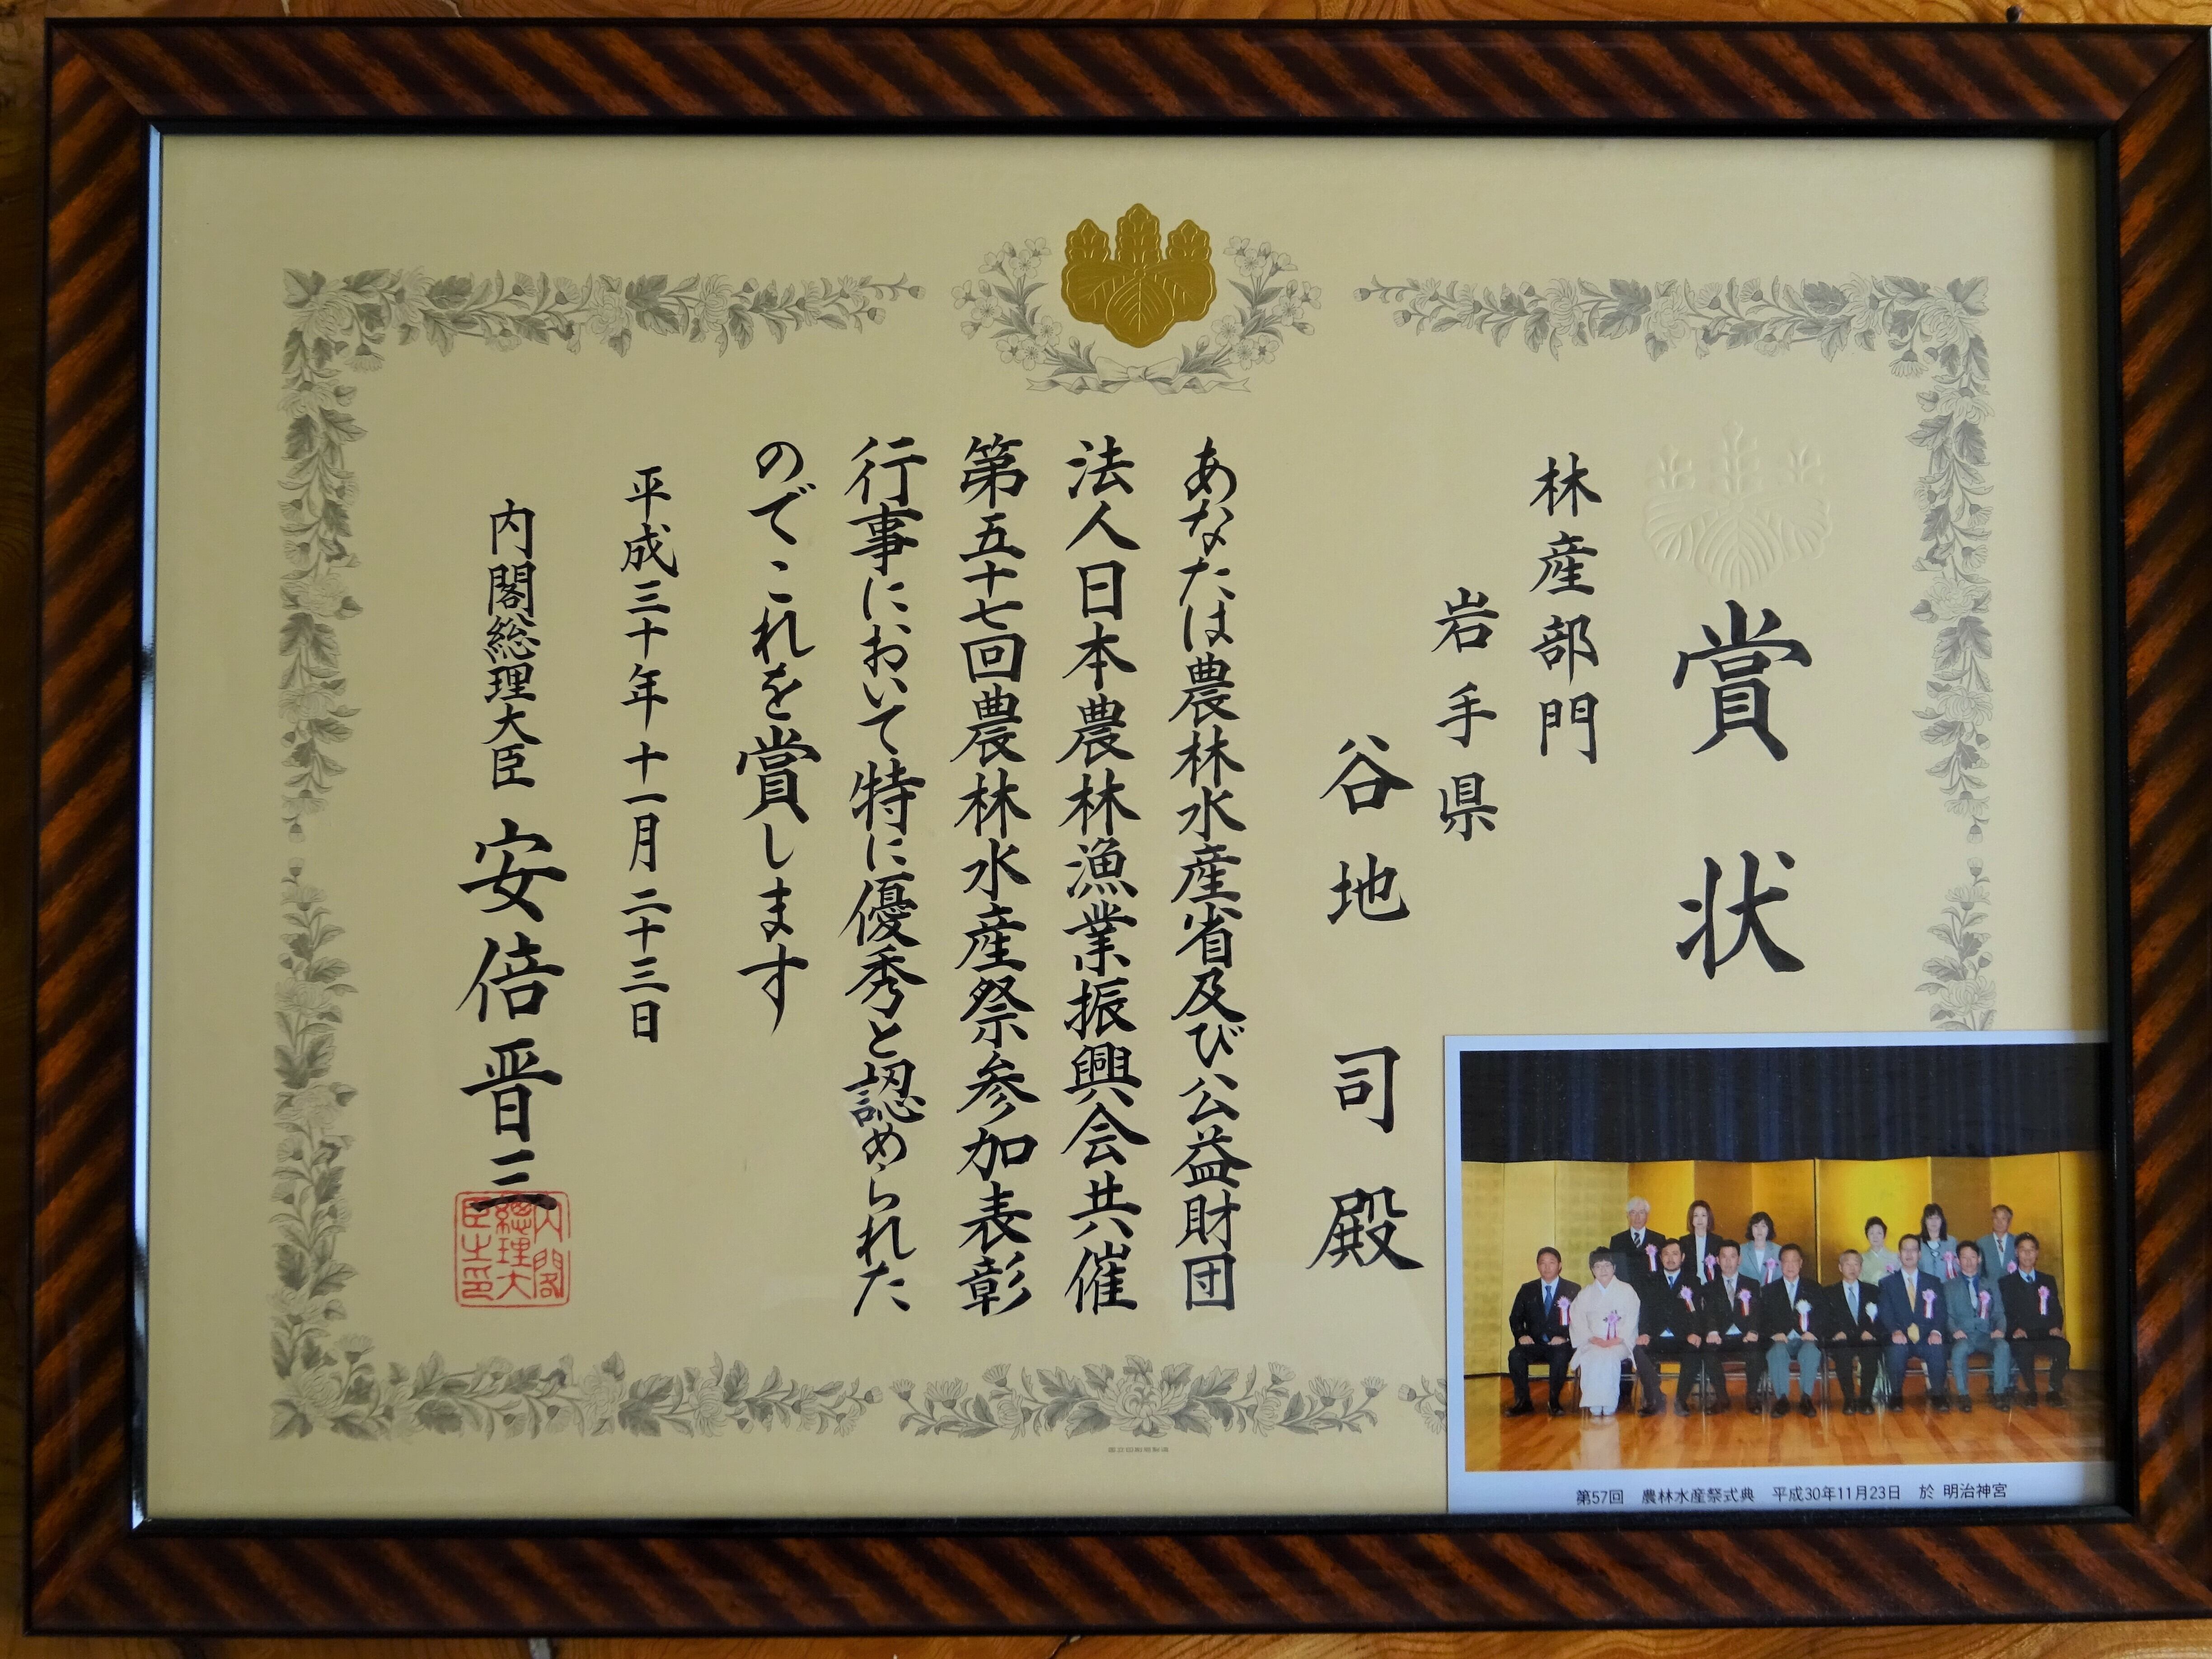 賞状
林産部門
岩手県
谷地 司 殿
あなたは農林水産省及び公益財団
法人日本農林漁業振興会共催
第五十七回農林水産祭参加表彰
行事において特に優秀と認められた
のでこれを賞します
平成三十年十一月二十三日
内閣総理大臣 安倍晋三
内閣
總理大
臣之印
第57回 農林水産祭式典 平成30年11月23日 於 明治神宮